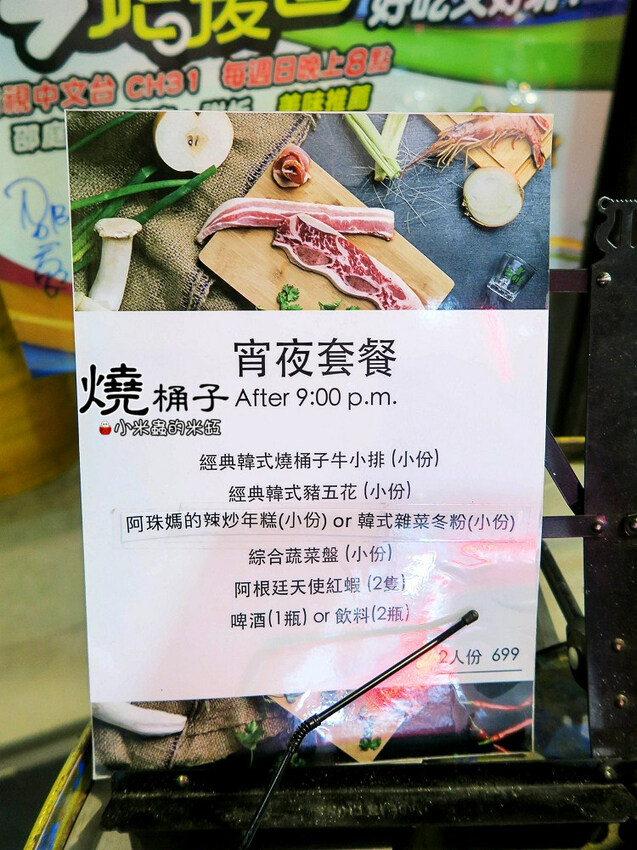 好吃又好玩
視中文台 CH31 每週日晚上8點
美味推薦
宵夜套餐
燒桶子
After 9:00 p.m.
小米蟲的米缸
經典韓式燒桶子牛小排 (小份)
經典韓式豬五花 (小份)
阿珠媽的辣炒年糕(小份) or 韓式雜菜冬粉(小份)
綜合蔬菜盤 (小份)
阿根廷天使紅蝦 (2隻)
啤酒(1瓶) or 飲料(2瓶)
2人份 699